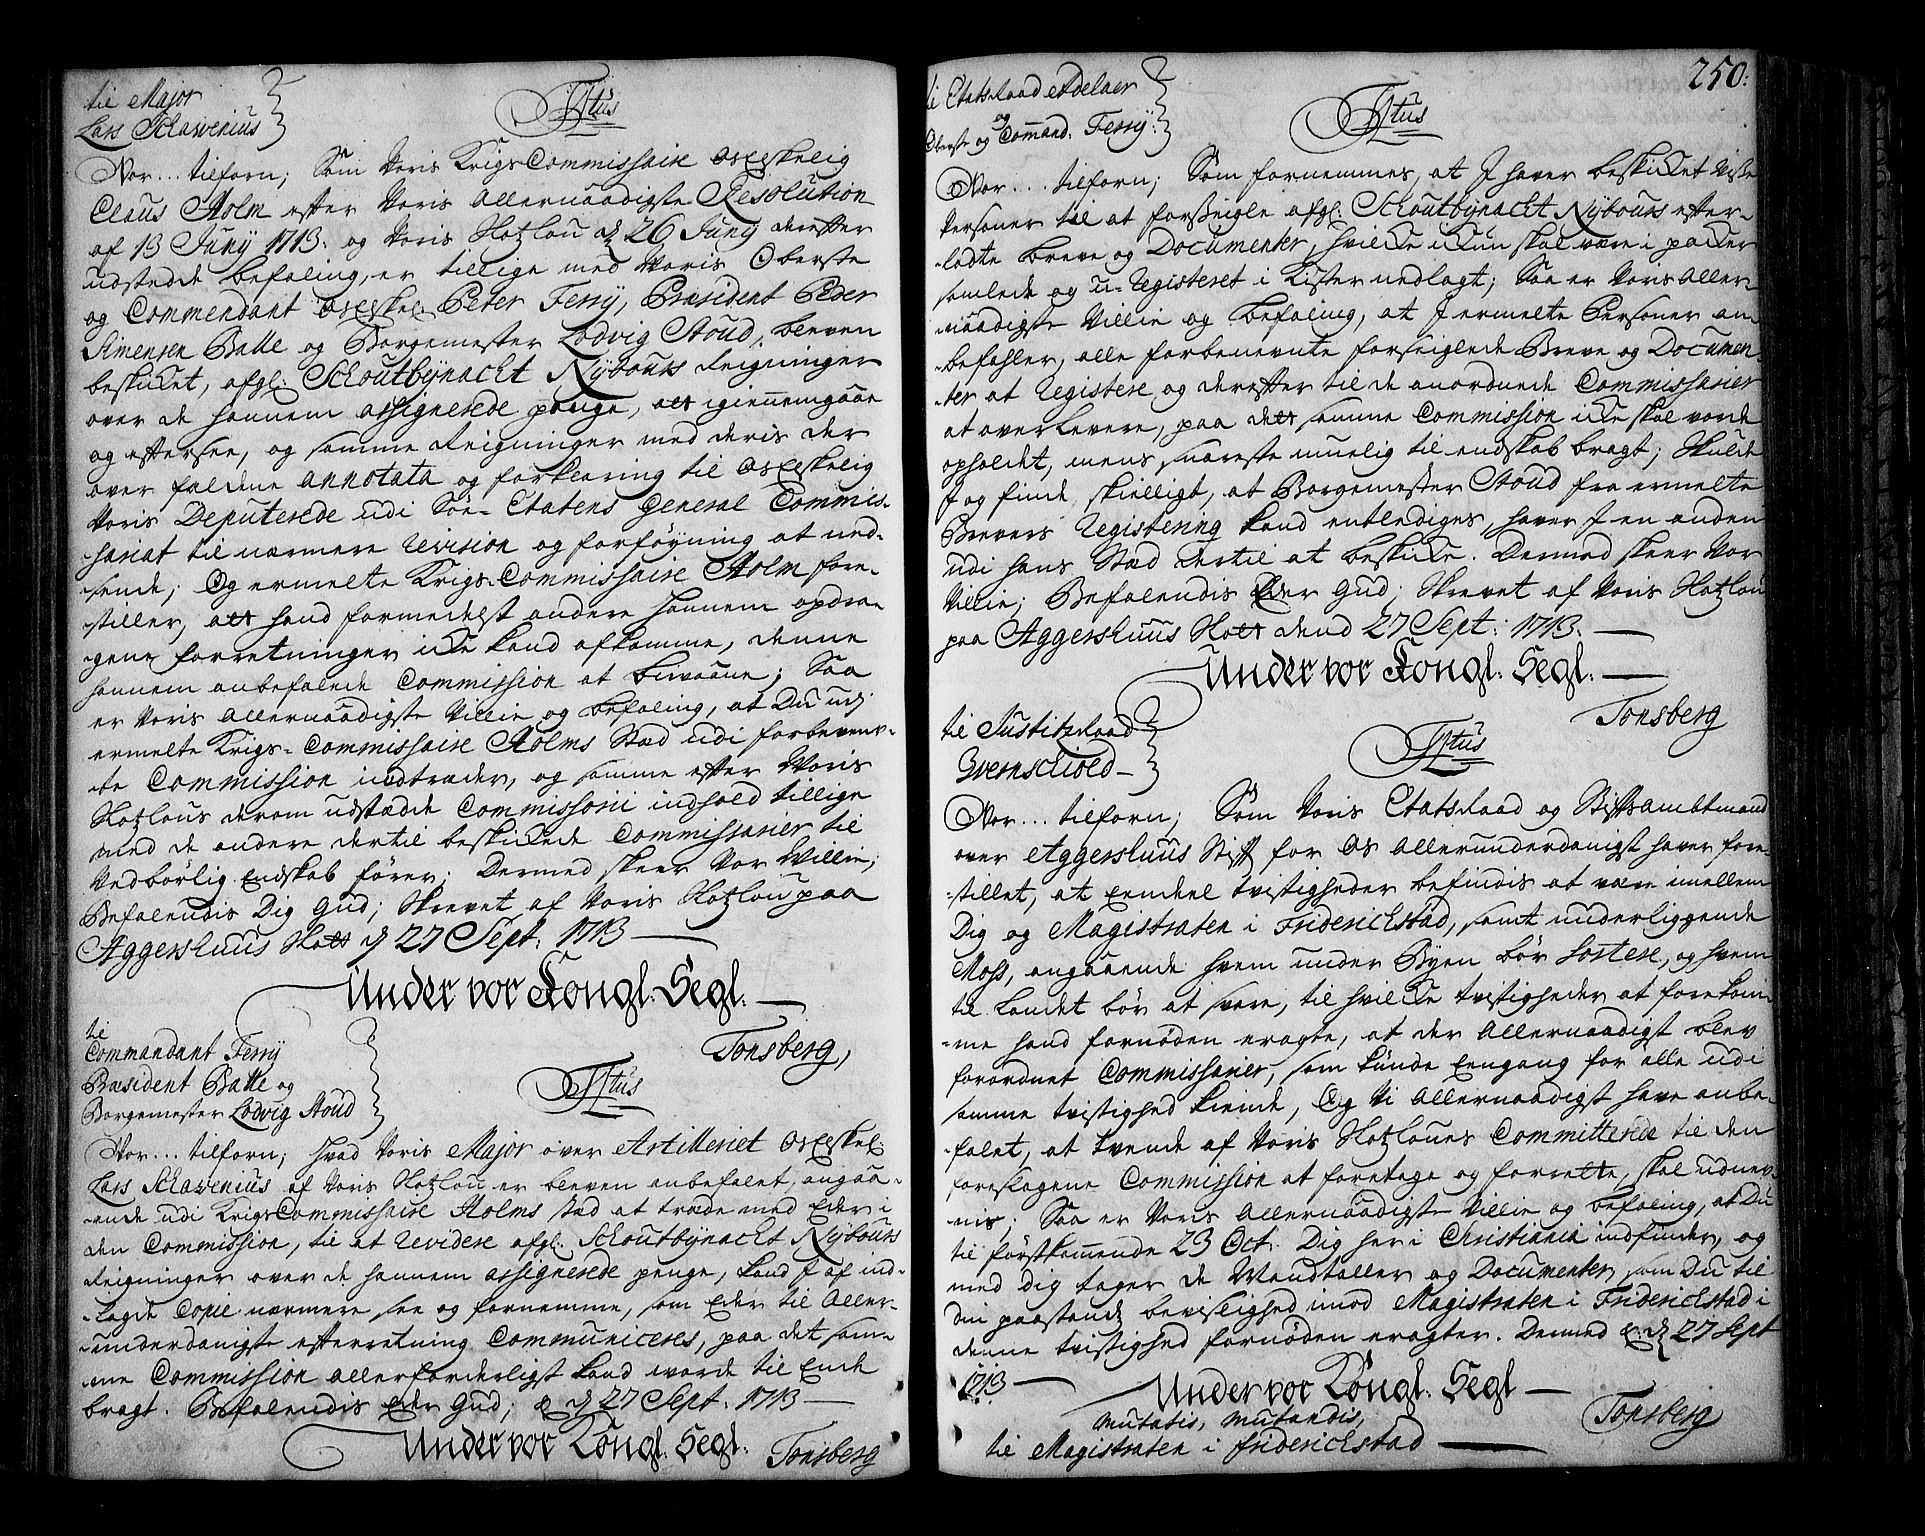 til Major
Lars Schavenius
Titus
Vor... tilforn; Som Voris Krigs Commissaire Os Elskelig
Claus Holm efter Voris Allernaadigste Resolution
af 13 Junÿ 1713. og Voris Slotzlou d 26 Junÿ derefter
udstedde befaling, er tillige med Voris Oberste
og Commendant Os Elskel: Peter Ferrÿ, Præsident Peder
Simensen Balle og Borgemester Lodvig Stoud, bleven
beskicket, afgl: Schoutbÿnacht Nÿbours Reigninger
over de hannem assignerede penge, att igiennemgaae
og eftersee, og samme Reigninger med deris der
over faldene annotata og forklaring til Os Elskelig
Voris Deputerede udi Søe-Etatens General Commis-
-sariat til nærmere revision og forføyning at ned-
-sende; Og ermelte Krigs-Commissaire Holm fore-
-stiller, att hand formedelst andre hannem opdra-
-gene forretninger icke kand afkomme, denne
hannem anbefalede Commission at bivaane; Saa
er Voris Allernaadigste Villie og befaling, at Du udj
ermelte Krigs-Commissaire Holms Stæd udi forbenevn-
-te Commission indtræder, og samme efter Voris
Slotzlous derom udstædde Commissorii indhold tillige
med de andre dertil beskickede Commissarier til
Vedbörlig Endskab förer; Dermed skeer Vor Villie;
Befalendis Dig Gud; Skrevet af Voris Slotzlou paa
Aggershuus Slott d 27 Sept: 1713
Under vor Kongl: Segl.
Tonsberg,
til
Commandant Ferrÿ
Præsident Balle og
Borgemester Lodvig Stoud
Titus
Vor... tilforn; Hvad Voris Major over Artilleriet Os Elskel:
Lars Schavenius af Voris Slotzlou er bleven anbefalet, angaa-
-ende udi Krigs Commissaire Holms stæd at træde med Eder i
den Commission, til at revidere afgl: Schoutbÿnacht Nÿbours
Reigninger over de hannem assignerede penge, kand I af ind-
-lagde Copie nærmere see og fornemme, som Eder til Aller-
-underdanigste efterretning Communiceres, paa det sam-
-me Commission allerforderligst kand worde til Ende
bragt. Befalendis Eder Gud; & d 27 Sept. 1713
Under vor Kongl. Segl:
Tonsberg
250:
til Etatsraad Adelaer
og
Oberste og Command. Ferrÿ:
Titus
Vor... tilforn; Som fornemmes, at I haver beskicket Visse
Personer til at forseigle afgl: Schoutbÿnacht Nÿbours efter-
-ladte breve og Documenter, hvilcke icke skal være i packer
samlede og u-registeret i Kister nedlagt; Saa er Voris Aller-
-naadigste Villie og befaling, at I ermelte Personer an-
befahler, alle forbenevnte forseiglede Breve og Documen-
-ter at registere og derefter til de anordnede Commissarier
at overlevere, paa dett samme Commission icke skal vorde
opholdet, mens snareste muelig til endskab bragt; Skulde
I og finde skielligt, at Borgemester Stoud fra ermelte
Brevers registering kand entlediges, haver I en anden
udi hans Stæd dertil at beskicke. Dermed skeer Vor
Villie; Befalendis Eder Gud; Skrevet af Voris Slotzlou
paa Aggershuus Slott dend 27 Sept: 1713.
Under vor Kongl: Segl.
Tonsberg
til Justitzraad
Svernschold
Titus
Vor... tilforn; Som Voris Etatsraad og Stiftsambtmand
over Aggershuus Stift for Os Allerunderdanigst haver fore-
-stillet, at Eendeel tvistigheder befindis at være imellem
Dig og Magistraten i Friderichstad, samt underliggende
Moss, angaaende hvem under Byen bör Sortere, og hvem
til Landet bör at svare, til hvilcke tvistigheder at forekom-
-me hand fornøden eragte, at der Allernaadigst blev
forordnet Commissarier, som kunde Eengang for alle udi
samme tvistighed kiende, Og Vi Allernaadigst have anbe-
-falet, at tvende af Voris Slotzlous Committerede til den
foreslagene Commission at foretage og forrette, skal udnev-
-nis; Saa er Voris Allernaadigste Villie og befaling, at Du
til förstkommende 23 Oct: Dig her i Christiania indfinder, og
med dig tager de Mandtaller og Documenter, som Du til
din paastands beviislighed imod Magistraten i Friderichstad i
denne tvistighed fornøden eragter. Dermed &: d 27 Sept
1713
Under vor Kongl: Segl
Tonsberg
mutatis, mutandis,
til Magistraten i friderichstad